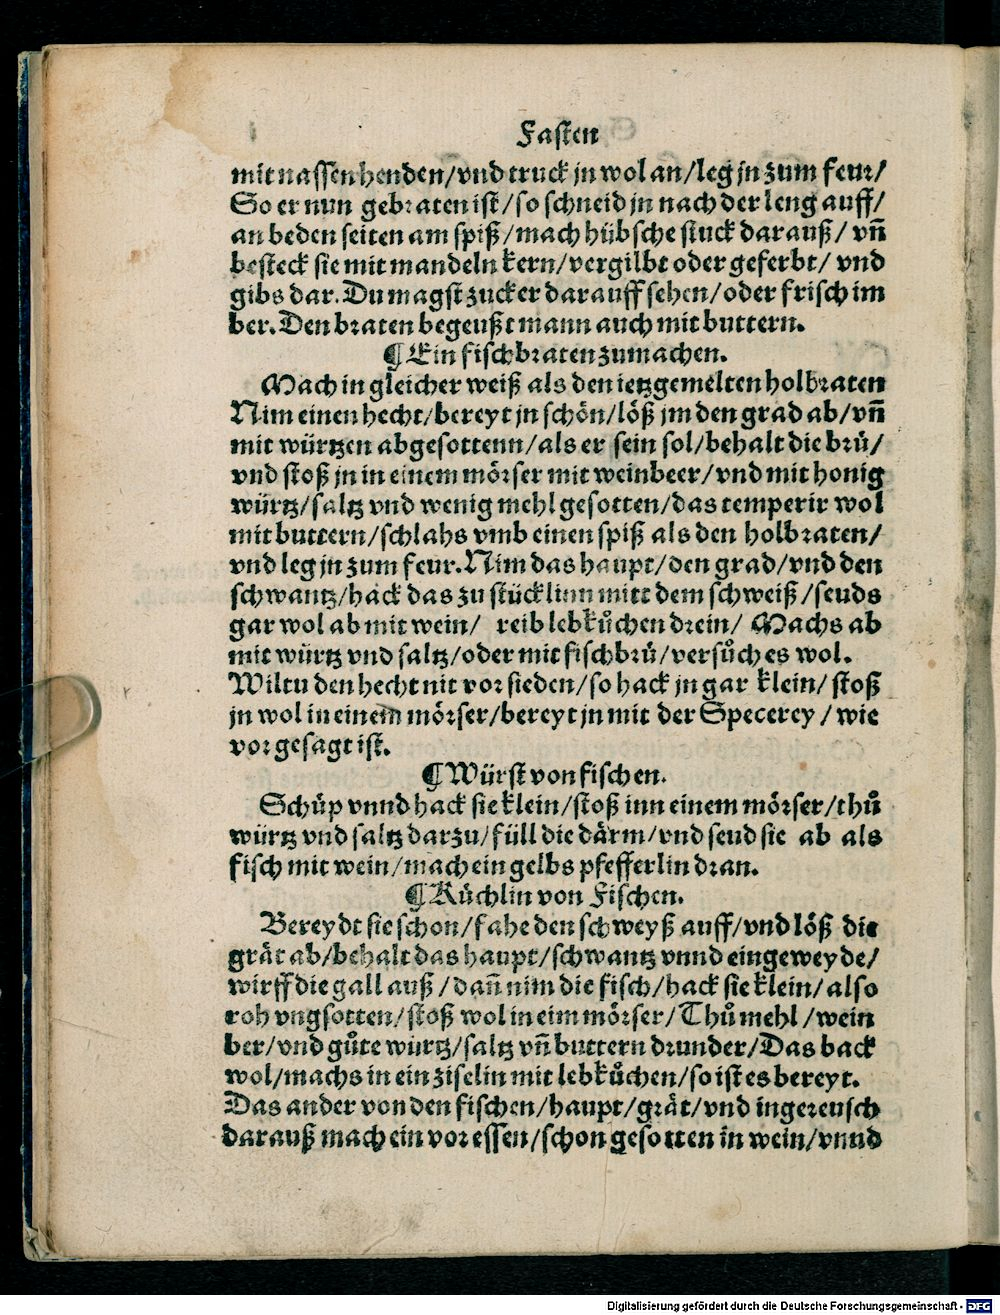 Fasten
mit nassen henden/vnd truck jn wol an/leg jn zum feur/
So er nun gebraten ist/so schneid jn nach der leng auff/
an beden seiten am spiß/mach hübsche stuck darauß/ vn̄
besteck sie mit mandeln kern/vergilbt oder geferbt/ vnd
gibs dar. Du magst zucker darauff sehen/oder frisch im
ber. Den braten begeußt mann auch mit buttern.
¶ Ein fischbraten zumachen.
Mach in gleicher weiß als den ietzgemelten holbraten
Nim einen hecht/bereyt jn schön/löß jm den grad ab/vn̄
mit würtzen abgesottenn/als er sein sol/behalt die brü/
vnd stoß jn in einem mörser mit weinbeer/vnd mit honig
würtz/saltz vnd wenig mehl gesotten/das temperir wol
mit buttern/schlahs vmb einen spiß als den holbraten/
vnd leg jn zum feur. Nim das haupt/den grad/vnd den
schwantz/hack das zu stücklinn mitt dem schweiß/seuds
gar wol ab mit wein/ reib lebkůchen drein/ Machs ab
mit würtz vnd saltz/oder mit fischbrü/versůch es wol.
Wiltu den hecht nit vor sieden/so hack jn gar klein/ stoß
jn wol in einem mörser/bereyt jn mit der Specerey / wie
vor gesagt ist.
¶ Würst von fischen.
Schüp vnnd hack sie klein/stoß inn einem mörser/thů
würtz vnd saltz darzu/füll die därm/vnd seud sie ab als
fisch mit wein/mach ein gelbs pfefferlin dran.
¶ Küchlin von Fischen.
Bereydt sie schon/fahe den schweyß auff/vnd löß die
grät ab/behalt das haupt/schwantz vnnd eingeweyde/
wirff die gall auß / dan̄ nim die fisch/hack sie klein/ also
roh vngsotten/stoß wol in eim mörser/ Thů mehl /wein
ber/vnd gůte würtz/saltz vn̄ buttern drunder/Das back
wol/machs in ein ziselin mit lebkůchen/so ist es bereyt.
Das ander von den fischen/haupt/grät/vnd ingereusch
darauß mach ein vor essen/schon gesotten in wein/vnnd
Digitalisierung gefördert durch die Deutsche Forschungsgemeinschaft - DFG